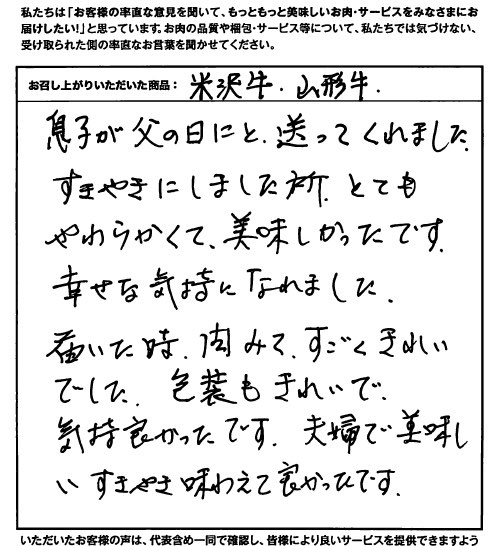 私たちは「お客様の率直な意見を聞いて、もっともっと美味しいお肉・サービスをみなさまにお
届けしたい!」と思っています。お肉の品質や梱包・サービス等について、私たちでは気づけない、
受け取られた側の率直なお言葉を聞かせてください。
お召し上がりいただいた商品: 米沢牛.山形牛.
息子が父の日にと、送ってくれました.
すきやきにしました所、とても
やわらかくて、美味しかったです.
幸せな気持になれました.
届いた時、肉みて、すごくきれい
でした. 包装もきれいで、
気持良かったです. 夫婦で美味し
いすきやき味わえて良かったです.
いただいたお客様の声は、代表含め一同で確認し、皆様により良いサービスを提供できますよう